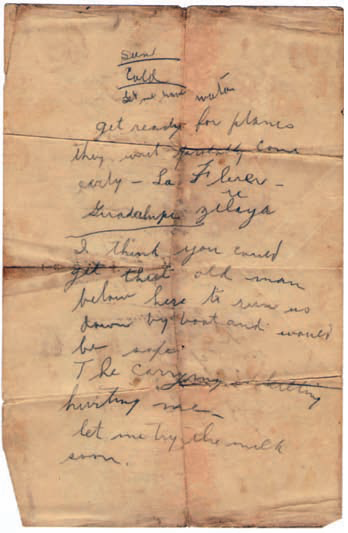 Sun
Cold
Let me have water
get ready for planes
they wont come
early – La Flver –
re
Guadalupe zelaya
I think you could
get that old man
below here to run us
down by boat and would
be safe.
The carrying is killing
hurting me –
let me try the milk
soon.